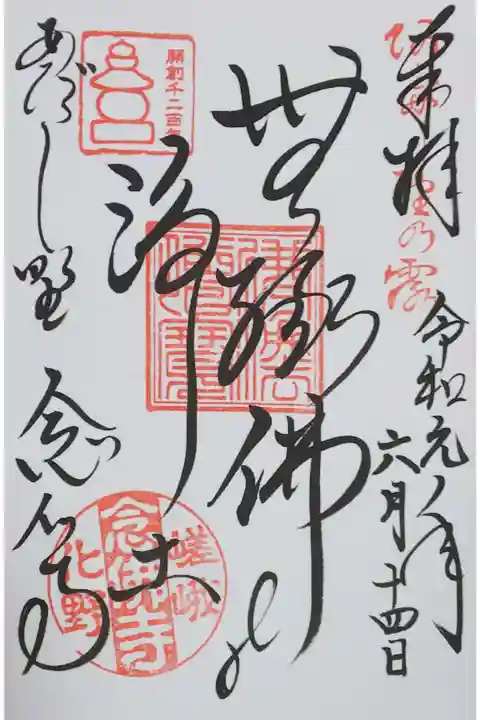 奉拝
乃露
令和元年
六月十四日
無縁佛の
浄土
開創千二百年
あだし野 念仏寺
嵯峨
念佛寺
化野